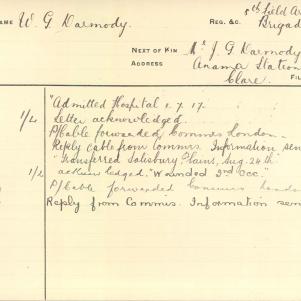 W. G. Darmody.
REG. &C.
5th Field A
Brigad
NEXT OF KIN
Mr J. G. Darmody
ADDRESS
Anama Station
Clare.
FIL
"Admitted Hospital 1.7.17.
1/4 Letter acknowledged.
P/Cable forwarded Commrs London
Reply cable from Commrs. Information sen
"Transferred Salisbury Plains, Aug. 24th"
1/2 acknowledged. "Wounded 2nd Occ."
P/Cable forwarded Commrs London
Reply from Commrs. Information sen